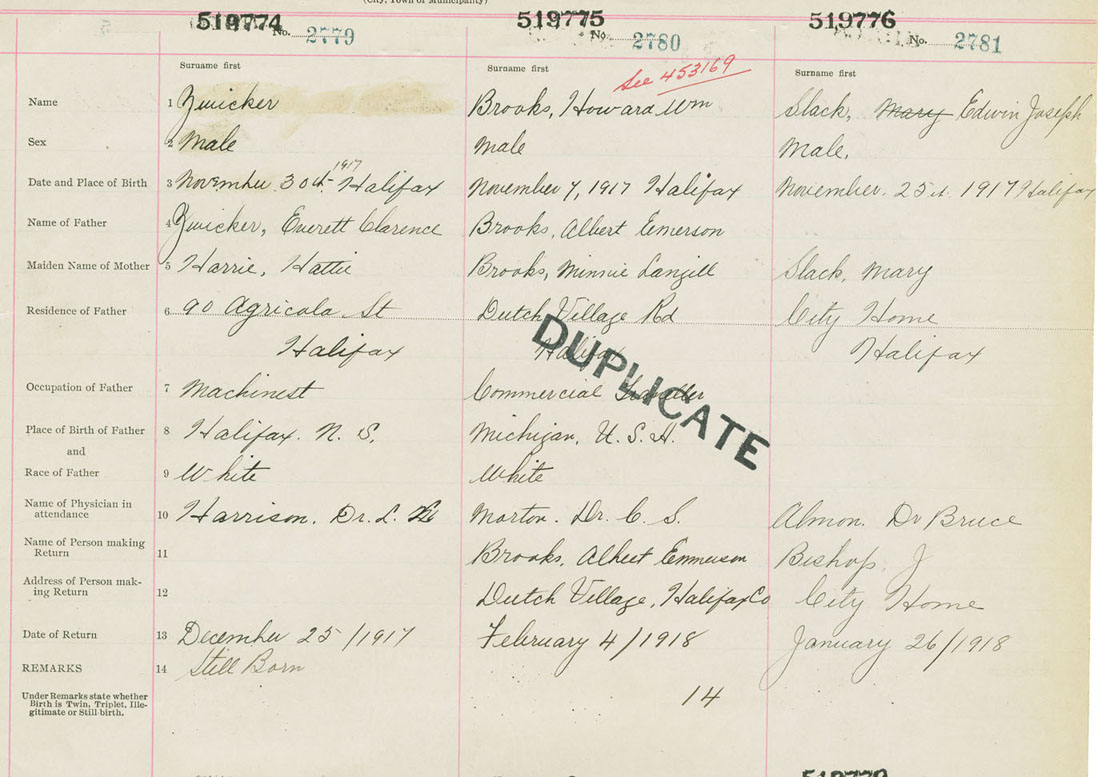 (City, Town or Municipality)
519774 519775 519776
No. 2779 No 2780 No. 2781
Surname first Surname first Surname first
See 453169
Name 1 Zwicker Brooks, Howard Wm Slack, Mary Edwin Joseph
Sex 2 Male Male Male.
1917
Date and Place of Birth 3 November 30th Halifax November 7, 1917 Halifax November. 25th. 1917 Halifax
Name of Father 4 Zwicker, Everett Clarence Brooks, Albert Emerson
Maiden Name of Mother 5 Harrie, Hattie Brooks, Minnie Langill Slack, Mary
Residence of Father 6 90 Agricola St Dutch Village Rd City Home
Halifax Halifax Halifax
DUPLICATE
Occupation of Father 7 Machinest Commercial
Place of Birth of Father 8 Halifax. N. S. Michigan, U. S. A.
and
Race of Father 9 White White
Name of Physician in
attendance 10 Harrison. Dr. L. Morton. Dr. C. S. Almon. Dr Bruce
Name of Person making
Return 11 Brooks, Albert Emmerson Bishop, J
Address of Person mak-
ing Return 12 Dutch Village, Halifax Co City Home
Date of Return 13 December 25/1917 February 4/1918 January 26/1918
REMARKS 14 Still Born
Under Remarks state whether
Birth is Twin, Triplet, Ille-
gitimate or Still-birth.
14